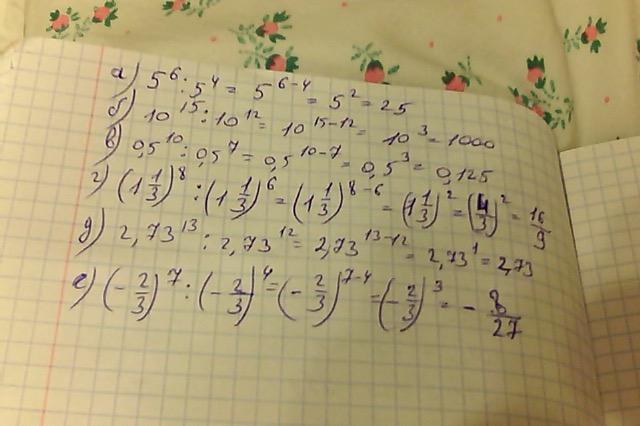 а) 5⁶ : 5⁴ = 5⁶⁻⁴ = 5² = 25
б) 10¹⁵ : 10¹² = 10¹⁵⁻¹² = 10³ = 1000
в) 0,5¹⁰ : 0,5⁷ = 0,5¹⁰⁻⁷ = 0,5³ = 0,125
г) (1 1/3)⁸ : (1 1/3)⁶ = (1 1/3)⁸⁻⁶ = (1 1/3)² = (4/3)² = 16/9
д) 2,73¹³ : 2,73¹² = 2,73¹³⁻¹² = 2,73¹ = 2,73
е) (-2/3)⁷ : (-2/3)⁴ = (-2/3)⁷⁻⁴ = (-2/3)³ = -8/27